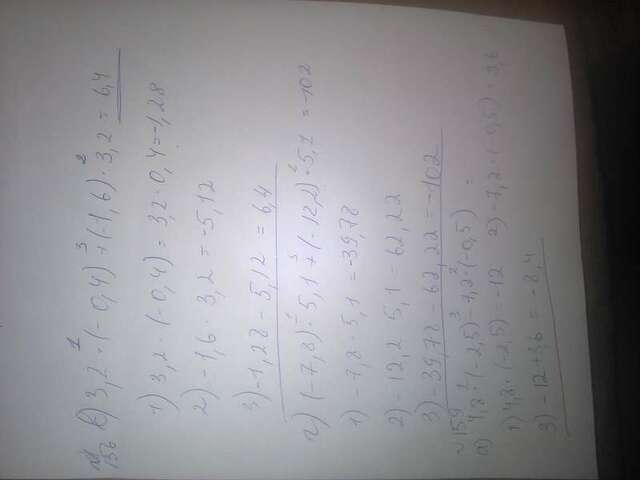 № 156 в) 3,2 · (-0,4) + (-1,6) · 3,2 = 6,4
1 3 2
1) 3,2 · (-0,4) = 3,2 · 0,4 = -1,28
2) -1,6 · 3,2 = -5,12
3) -1,28 - 5,12 = 6,4
г) (-7,8) · 5,1 + (-12,2) · 5,1 = -102
1 3 2
1) -7,8 · 5,1 = -39,78
2) -12,2 5,1 = 62,22
3) -39,78 - 62,22 = -102
№ 159
а) 4,8 · (-2,5) - 7,2 · (-0,5) =
1 3 2
1) 4,8 · (-2,5) = -12 2) -7,2 · (-0,5) = 3,6
3) -12 + 3,6 = -8,4